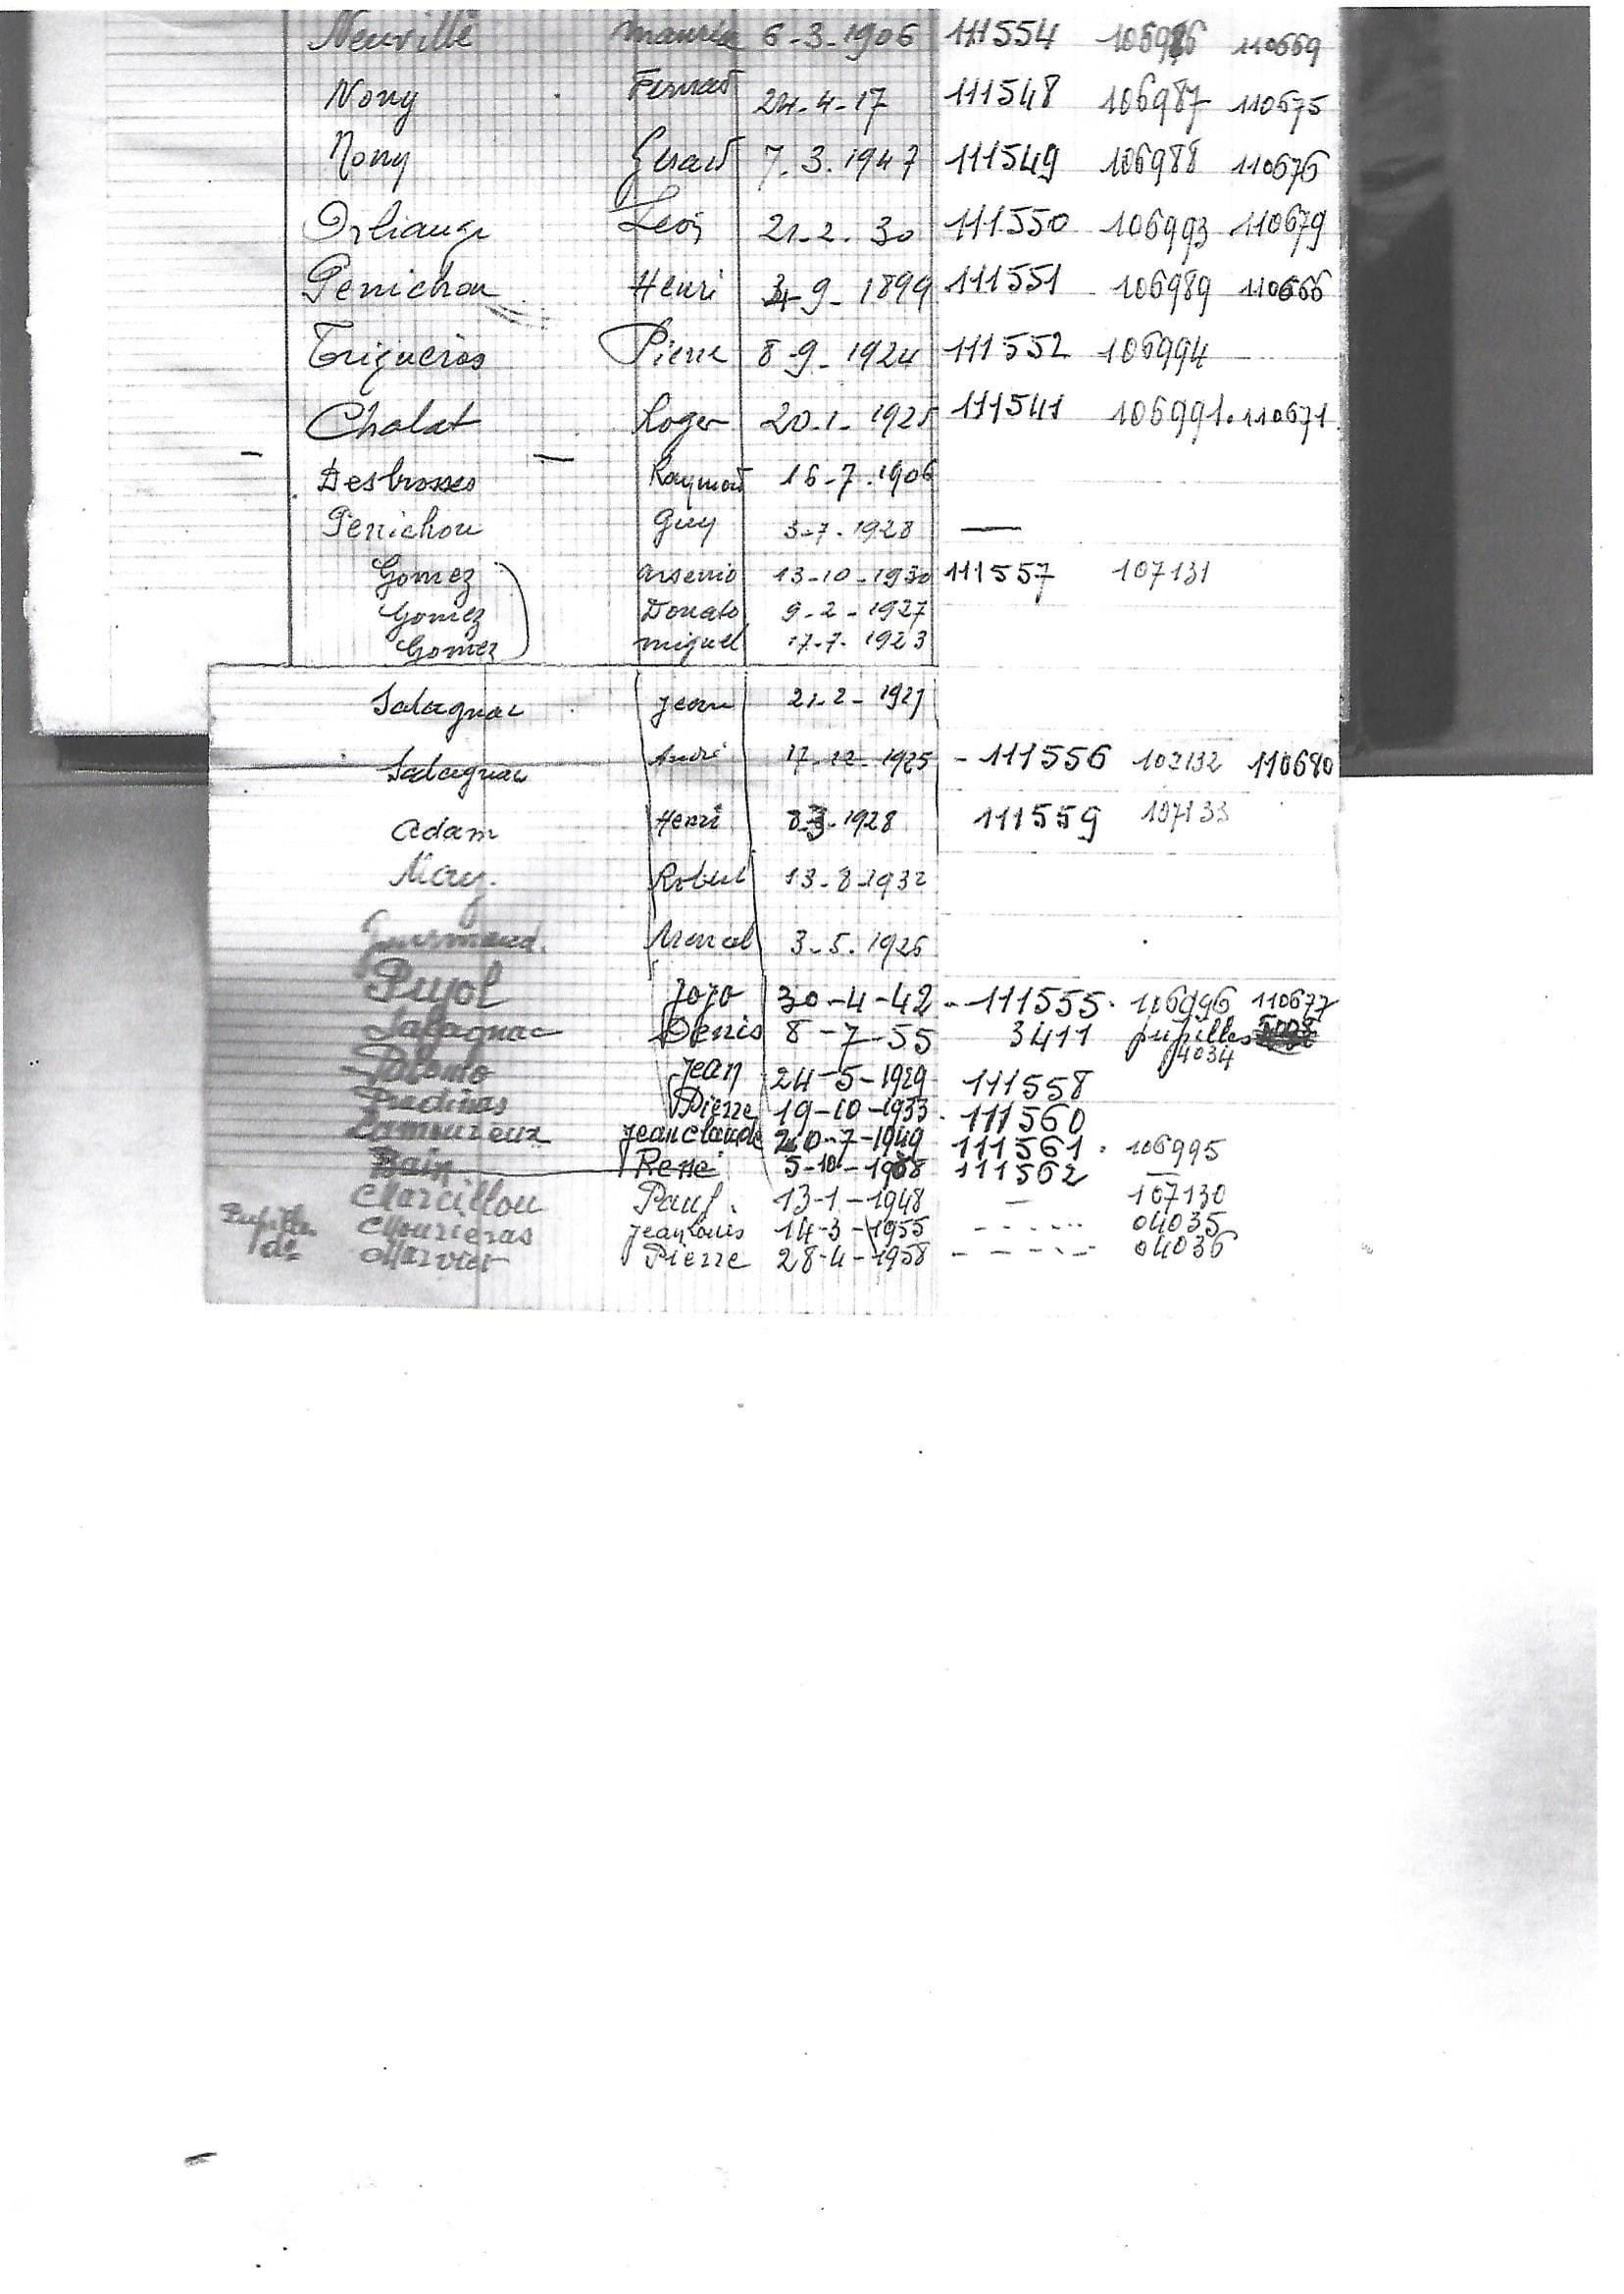 Neuville Maurice 6-3-1906 111554 106986 110669
Nony Fernand 24-4-17 111548 106987 110675
Nony Gerard 7.3.1947 111549 106988 110676
Orliange Leon 21-2.30 111550 106993 110679
Perrichon Henri 9-1899 111551 106989 110666
Trigueros Pierre 8-9-1924 111552 106994
Chalat Roger 20-1-1925 111541 106991.110671
Desbrosses Raymond 16-7.1906
Perrichon Guy 3-7.1928 —
Gomez Arsenio 13-10-1930 111557 107131
Gomez Donato 9-2-1927
Gomez Miguel 17-7.1923
Salagnac Jean 21-2-1927
Salagnac André 17-12-1925 - 111556 107132 110680
Adam Henri 1928 111559 107133
Robert 13-8-1932
3-5.1926
Pujol Jojo 30-4-42 - 111555. 106996 110677
Salagnac Denis 8-7-55 3411 pupilles
4034
Palomo Jean 24-5-1929 111558
Pradinas Pierre 19-10-1933. 111560
Lamoureux Jean Claude 20-7-1949 111561. 106995
Bain René 5-10-19 111562 —
Marcillou Paul. 13-1-1948 — 107130
Pupille Mourieras Jean Louis 14-3-1955 - - - - - 04035
do Marvier Pierre 28-4-1958 - - - - - 04036